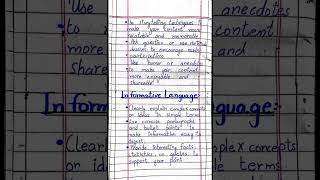 Use storytelling techniques to
make your content more
relatable and memorable.
Ask question or use
to encourage
participation.
Use humor or anecdotes
to make your content
more enjoyable and
shareable.
Informative Language:
Clearly explain complex concepts
or ideas in simple terms.
Use concise paragraphs
and bullet points to
make information easy to
digest.
Provide interesting facts,
statistics, or
support your point.
Use
to
more
share
Inform
Clear
or id
anecdotes
tent
and
guage:
x concepts
terms